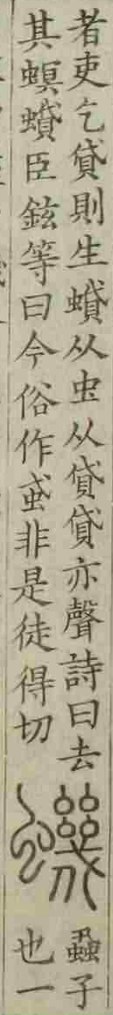 者吏乞貸則生蟘从虫从貸貸亦聲詩曰去
其螟蟘臣鉉等曰今俗作䖥非是徒得切
蟣
蝨子
也一